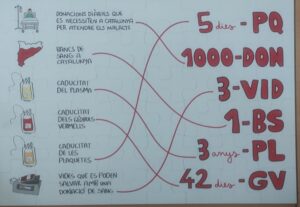 DONACIONS DIÀRIES QUE
ES NECESSITEN A CATALUNYA
PER ATENDRE ELS MALALTS
BANCS DE
SANG A
CATALUNYA
CADUCITAT
DEL PLASMA
CADUCITAT
DELS GLÒBULS
VERMELLS
CADUCITAT
DE LES
PLAQUETES
VIDES QUE ES PODEN
SALVAR AMB UNA
DONACIÓ DE SANG
5 dies - PQ
1000 - DON
3 - VID
1 - BS
3 anys - PL
42 dies - GV